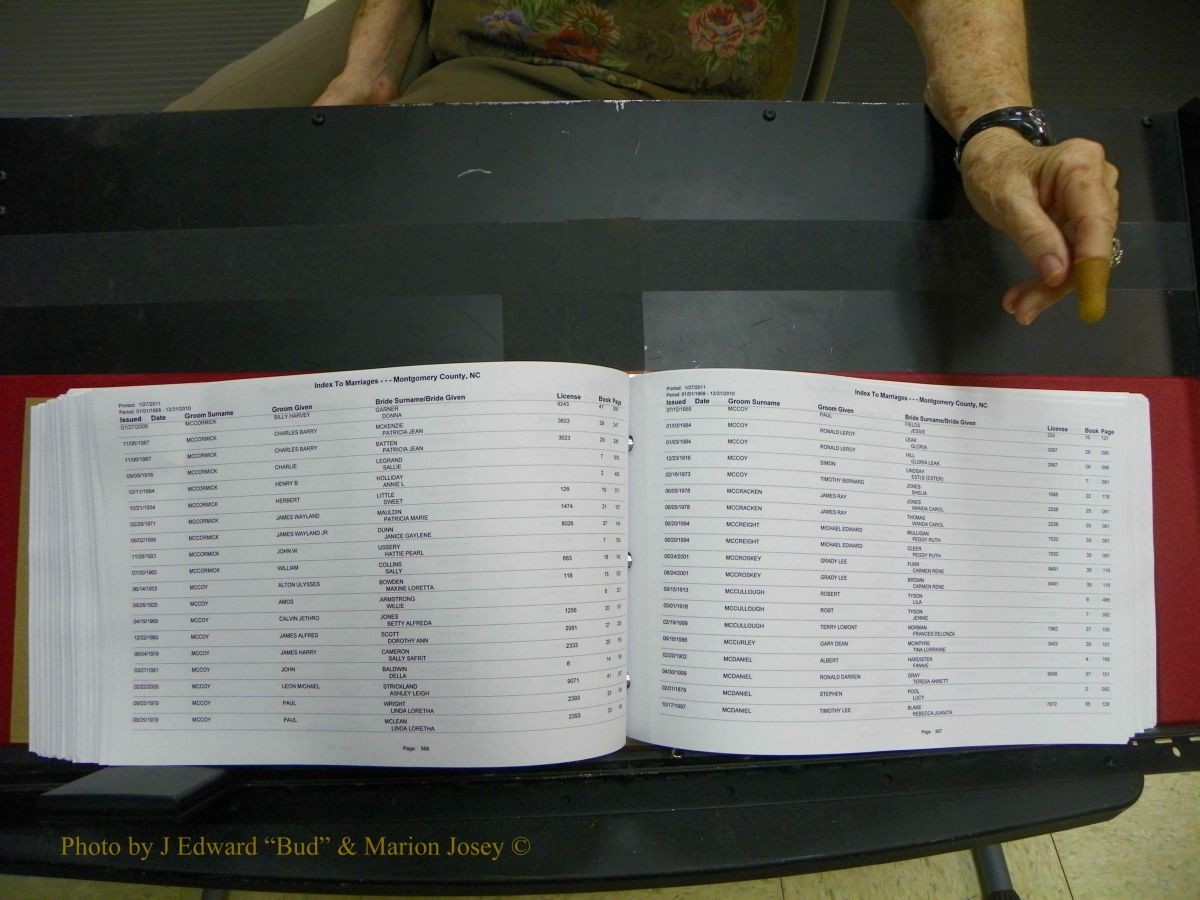 Index To Marriages - - - Montgomery County, NC
Printed: 1/27/2011
Period: 01/01/1868 - 12/31/2010
Issued Date Groom Surname Groom Given Bride Surname/Bride Given License Book Page
01/27/2006 MCCORMICK BILLY HARVEY GARNER 9243 41
DONNA
11/06/1987 MCCORMICK CHARLES BARRY MCKENZIE 3623 29
PATRICIA JEAN
11/06/1987 MCCORMICK CHARLES BARRY BATTEN 3623 29
PATRICIA JEAN
09/09/1916 MCCORMICK CHARLIE LEGRAND 7
SALLIE
MCCORMICK HENRY B HOLLIDAY 2
ANNIE L
10/21/1934 MCCORMICK HERBERT LITTLE 126 10
SWEET
05/28/1971 MCCORMICK JAMES WAYLAND MAULDIN 1474 21
PATRICIA MARIE
06/02/1999 MCCORMICK JAMES WAYLAND JR DUNN 8026 37
JANICE GAYLENE
11/26/1921 MCCORMICK JOHN W USSERY 7
HATTIE PEARL
07/30/1965 MCCORMICK WILLIAM COLLINS 883
SALLY
06/14/1953 MCCOY ALTON ULYSSES BOWDEN 118 15
MAXINE LORETTA
MCCOY AMOS ARMSTRONG
WILLIE
04/19/1969 MCCOY CALVIN JETHRO JONES 1256 20
BETTY ALFREDA
12/22/1983 MCCOY JAMES ALFRED SCOTT 2991 27
DOROTHY ANN
MCCOY JAMES HARRY CAMERON 2333 25
SALLY SAFRIT
03/27/1951 MCCOY JOHN BALDWIN 6 14
DELLA
02/22/2005 MCCOY LEON MICHAEL STRICKLAND 9071 41
ASHLEY LEIGH
09/25/1979 MCCOY PAUL WRIGHT 2393 25
LINDA LORETHA
09/25/1979 MCCOY PAUL MCLEAN 2393 25
LINDA LORETHA
Page: 566
Index To Marriages - - - Montgomery County, NC
Printed: 1/27/2011
Period: 01/01/1868 - 12/31/2010
Issued Date Groom Surname Groom Given Bride Surname/Bride Given License Book Page
07/12/1955 MCCOY PAUL FIELDS 238 15 137
JESSIE
01/03/1984 MCCOY RONALD LEROY LEAK 2997 28 096
GLORIA
01/03/1984 MCCOY RONALD LEROY HILL 2997 28 096
GLORIA LEAK
12/23/1916 MCCOY SIMON LINDSAY 7 081
ESTLE (ESTER)
02/16/1973 MCCOY TIMOTHY BERNARD JONES 22 178
SHELIA
06/05/1978 MCCRACKEN JAMES RAY JONES 2238 25 001
WANDA CAROL
06/05/1978 MCCRACKEN JAMES RAY THOMAS 2238 25 001
WANDA CAROL
06/20/1994 MCCREIGHT MICHAEL EDWARD MULLIGAN 7032 33 381
PEGGY RUTH
06/20/1994 MCCREIGHT MICHAEL EDWARD CLEER 7032 33 381
PEGGY RUTH
08/24/2001 MCCROSKEY GRADY LEE FURR 8491 38 110
CARMEN RENE
08/24/2001 MCCROSKEY GRADY LEE BROWN 8491 38 110
CARMEN RENE
03/15/1913 MCCULLOUGH ROBERT TYSON 6 405
LILA
05/01/1918 MCCULLOUGH ROBT TYSON 7 332
JENNIE
02/19/1999 MCCULLOUGH TERRY LOMONT NORMAN 7982 37 100
FRANCES DELONZA
06/18/1988 MCCURLEY GARY DEAN MCINTYRE 29 121
TINA LORRAINE
02/20/1902 MCDANIEL ALBERT HARDISTER 4
FANNIE
04/30/1999 MCDANIEL RONALD DARREN GRAY 8006 37 101
TERESA ANNETT
02/01/1879 MCDANIEL STEPHEN POOL 2 052
LUCY
10/17/1997 MCDANIEL TIMOTHY LEE BLAKE 7672 35 129
REBECCA JUANITA
Page: 567
Photo by J Edward “Bud” & Marion Josey ©